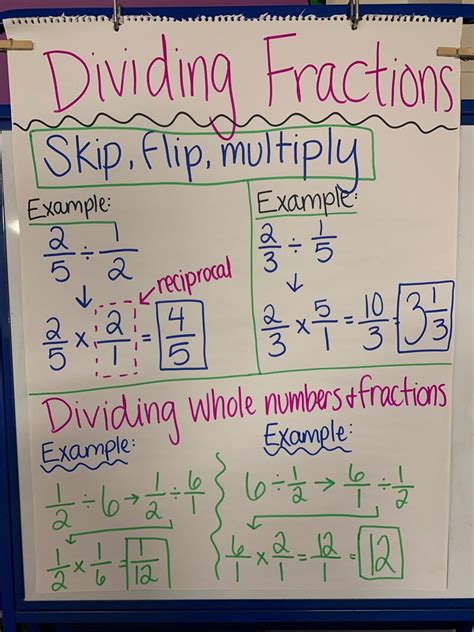 Dividing Fractions
Skip, flip, multiply
Example:
2/5 ÷ 1/2
↓ reciprocal
2/5 × 2/1 = 4/5
Example:
2/3 ÷ 1/5
↓
2/3 × 5/1 = 10/3 = 3 1/3
Dividing whole numbers & fractions
Example:
1/2 ÷ 6 → 1/2 ÷ 6/1
1/2 × 1/6 = 1/12
Example:
6 ÷ 1/2 → 6/1 ÷ 1/2
6/1 × 2/1 = 12/1 = 12